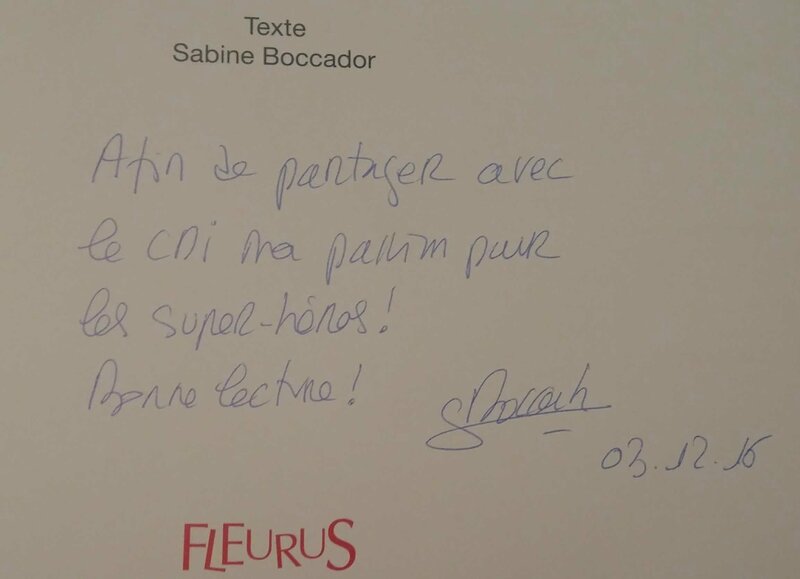 Texte
Sabine Boccador
Afin de partager avec
le CDI ma passion pour
les super-héros !
Bonne lecture !
SBoccador
03.12.16
FLEURUS